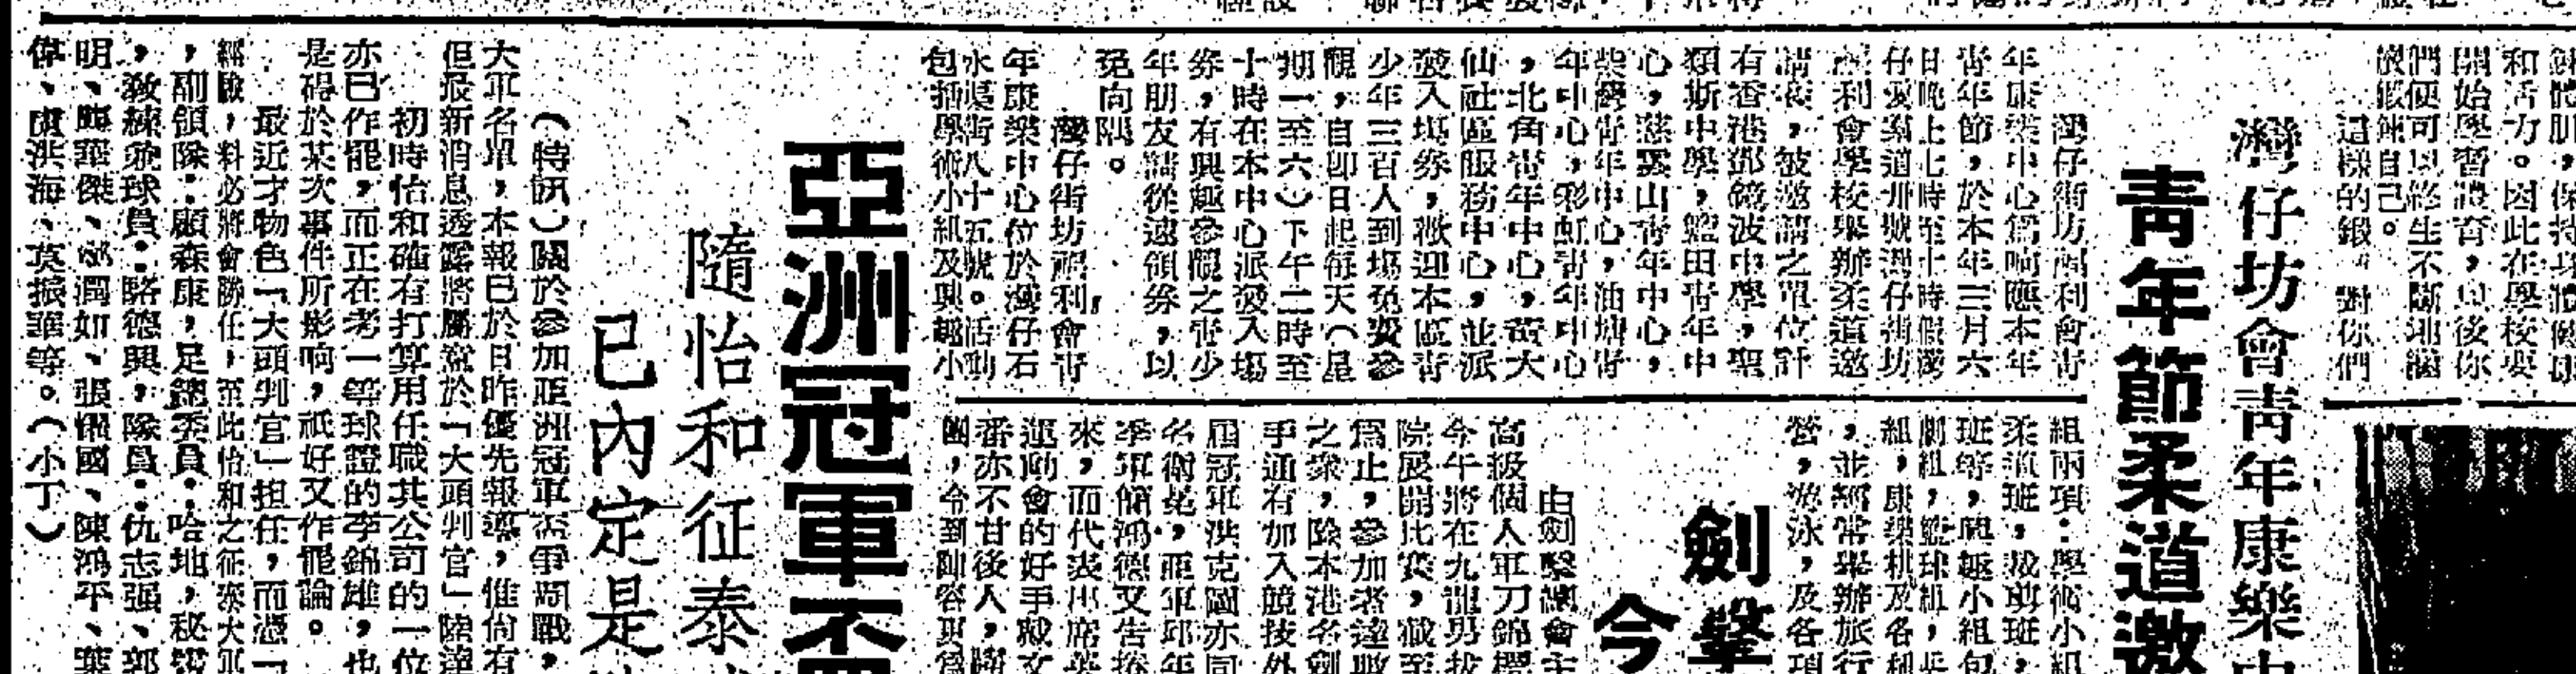 和活力。因此在學校要
開始學習體育，以後你
們便可以終生不斷地
鍛鍊自己。
這樣的鍛 對你們
灣仔坊會青年康樂中
青年節柔道邀
灣仔街坊福利會青
年康樂中心為响應本年
青年節，於本年三月六
日晚上七時至十時假灣
仔愛羣道卅號灣仔街坊
福利會學校舉辦柔道邀
請 ，被邀請之單位計
有香港鄧鏡波中學，聖
類斯中學，藍田青年中
心，慈雲山青年中心，
柴灣青年中心，油塘青
年中心，彩虹青年中心
，北角青年中心，黃大
仙社區服務中心，並派
發入場券，歡迎本區青
少年三百人到場免費參
觀，自即日起每天（星
期一至六）下午二時至
十時在本中心派發入場
券，有興趣參觀之青少
年朋友請從速領券，以
免向隅。
灣仔街坊福利會青
年康樂中心位於灣仔石
水渠街八十五號。活動
包括學術小組及興趣小
組兩項：學術小組
柔道班，裁剪班，
班等，興趣小組包
劇組，籃球組，
組，康樂棋及各
，並經常舉辦旅行
營，游泳，及各項
劍擊
今
由劍擊總會主
高級個人軍刀錦標
今午將在九龍男拔
院展開比賽，截至
為止，參加者達
之衆，除本港名劍
手通有加入競技外
屆冠軍洪克圖亦同
名衛冕，亞軍邱年
季軍簡鴻德又告捲
來，而代表出席
運動會的好手戴
番亦不甘後人，
團，令到陣容更為
亞洲冠軍盃
隨怡和征泰
已內定是
（特訊）關於參加亞洲冠軍盃爭霸戰，
大軍名單，本報已於日昨優先報導，惟尙有
但最新消息透露將屬意於「大頭判官」陸達
初時怡和確有打算用任職其公司的一位
亦已作罷，而正在考一等球證的李錦雄，也
是碍於某次事件所影响，祇好又作罷論。
最近才物色「大頭判官」担任，而憑「
經驗，料必將會勝任，至此怡和之征泰大軍
，副領隊：顧森康，足總委員：哈地，秘
，敎練兼球員：駱德興，隊員：仇志强、郭
明、 華傑、鄧潤如、張耀國、陳鴻平、葉
偉、盧洪海、莫振華等。（小丁）